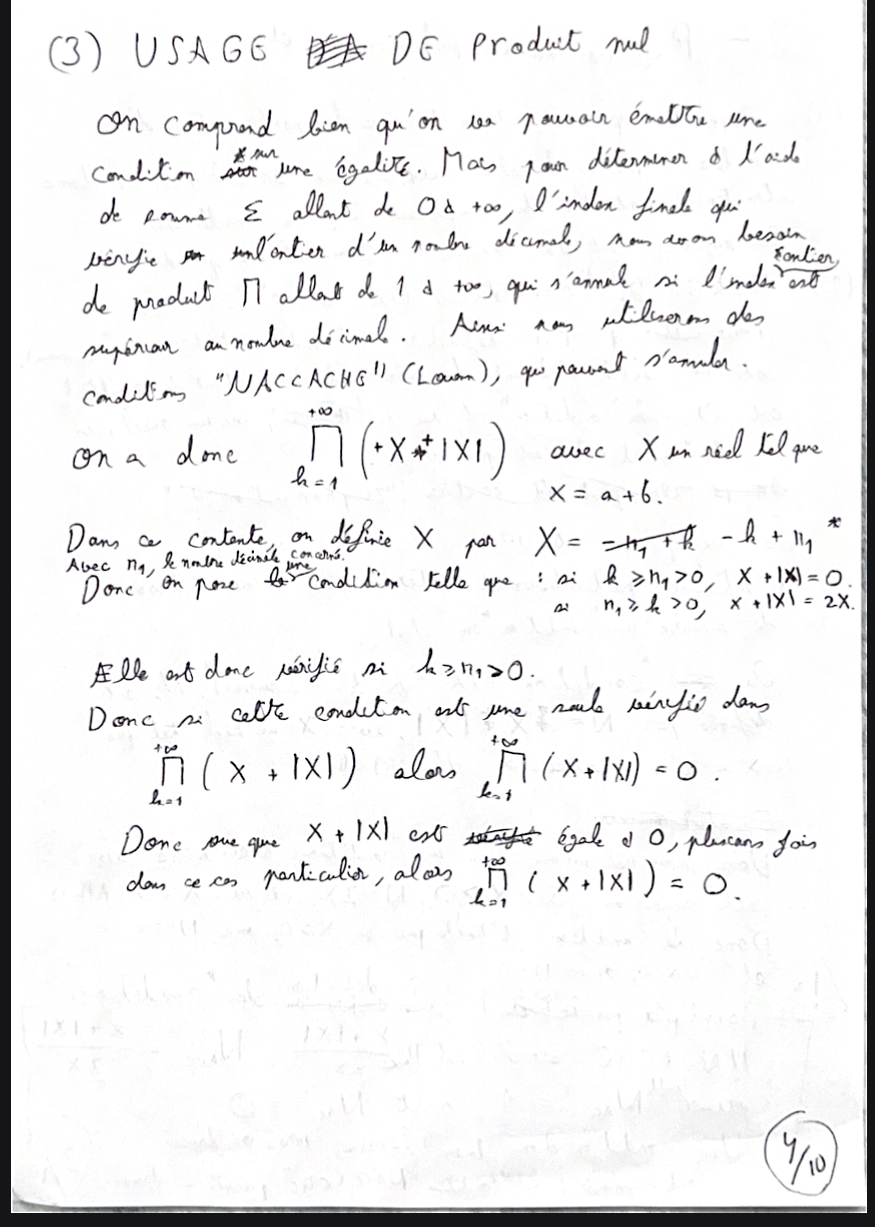 (3) USAGE DE Produit nul
On comprend bien qu'on va pouvoir émettre une
condition * sur une égalité. Mais pour déterminer à l'aide
de somme Σ allant de 0 à +∞, l'index finale qui
vérifie l'entier d'un nombre décimale, nous avons besoin
de produit Π allant de 1 à +∞, qui s'annule si l'index entier est
supérieur au nombre décimale. Ainsi nous utiliserons des
conditions "NACCACHE" (Louan), qui peuvent s'annuler.
On a donc \prod_{k=1}^{+∞} (+X + |X|) avec X un réel tel que
X = a + b.
Dans ce contexte, on définie X par X = -k + n₁ *
Avec n₁, le nombre décimale concerné.
Donc on pose une condition telle que : si k ⩾ n₁ > 0, X + |X| = 0.
si n₁ ⩾ k > 0, X + |X| = 2X.
Elle est donc vérifié si k ⩾ n₁ > 0.
Donc si cette condition est une seule vérifié dans
\prod_{k=1}^{+∞} (X + |X|) alors \prod_{k=1}^{+∞} (X + |X|) = 0.
Donc vue que X + |X| est égale à 0, pluseurs fois
dans ce cas particulier, alors \prod_{k=1}^{+∞} (X + |X|) = 0.
4/10